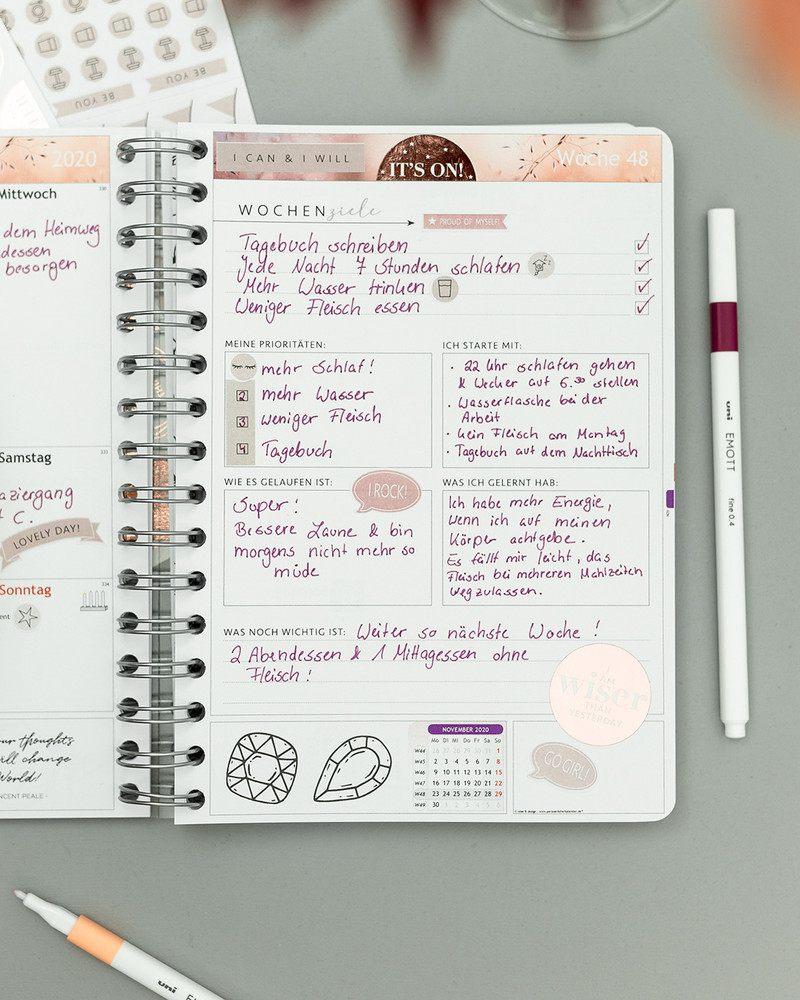 BE YOU
BE YOU
2020
Mittwoch
dem Heimweg
dessen
besorgen
Samstag
aziergang
C.
LOVELY DAY!
Sonntag
our thoughts
change
World!
NCENT PEALE -
I CAN & I WILL
IT'S ON!
Woche 48
WOCHENziele
PROUD OF MYSELF!
Tagebuch schreiben
Jede Nacht 7 Stunden schlafen
Mehr Wasser trinken
Weniger Fleisch essen
MEINE PRIORITÄTEN:
mehr Schlaf!
2 mehr Wasser
3 weniger Fleisch
4 Tagebuch
ICH STARTE MIT:
· 22 Uhr schlafen gehen
& Wecker auf 6.30 stellen
· Wasserflasche bei der
Arbeit
· kein Fleisch am Montag
· Tagebuch auf dem Nachttisch
WIE ES GELAUFEN IST:
I ROCK!
Super!
Bessere Laune & bin
morgens nicht mehr so
müde
WAS ICH GELERNT HAB:
Ich habe mehr Energie,
wenn ich auf meinen
Körper achtgebe.
Es fällt mir leicht, das
Fleisch bei mehreren Mahlzeiten
wegzulassen.
WAS NOCH WICHTIG IST: Weiter so nächste Woche!
2 Abendessen & 1 Mittagessen ohne
Fleisch!
I
AM
wiser
THAN
YESTERDAY
NOVEMBER 2020
Mo Di Mi Do Fr Sa So
W44 26 27 28 29 30 31 1
W45 2 3 4 5 6 7 8
W46 9 10 11 12 13 14 15
W47 16 17 18 19 20 21 22
W48 23 24 25 26 27 28 29
W49 30 1 2 3 4 5 6
GO GIRL!
uni EMOTT fine 0.4
uni